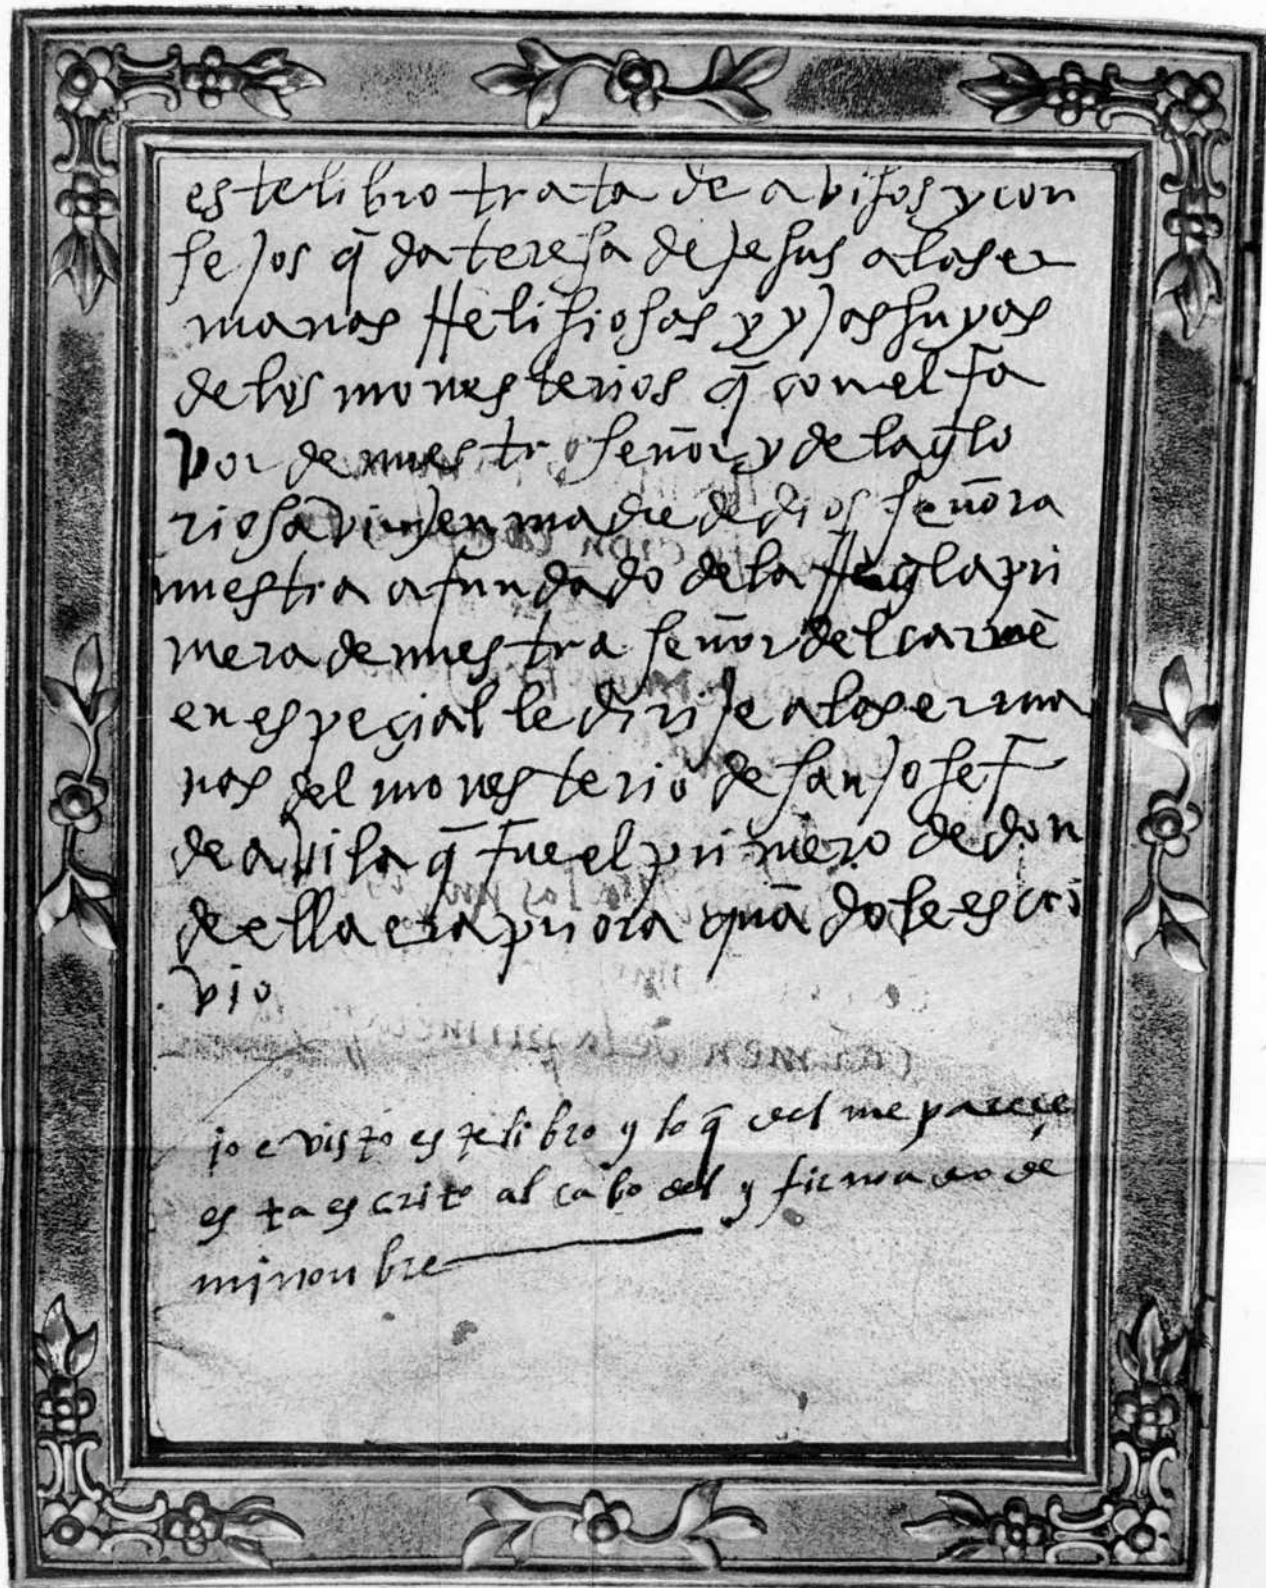 este libro trata de avisos y con
sejos q̄ da teresa de jesus a las er
manas rrelisiosas y yjas suyas
de los monesterios q̄ con el fa
vor de nuestro señor y de la glo
riosa virjen madre de dios señora
nuestra a fundado de la rregla pri
mera de nuestra señora del carmē
en espeçial le dirije a las erma
nas del monesterio de san josef
de avila q̄ fue el primero de don
de ella era priora quādo le escri
vio
jo e visto este libro y lo q̄ del me pareçe
esta escrito al cabo del y firmado de
mi nonbre